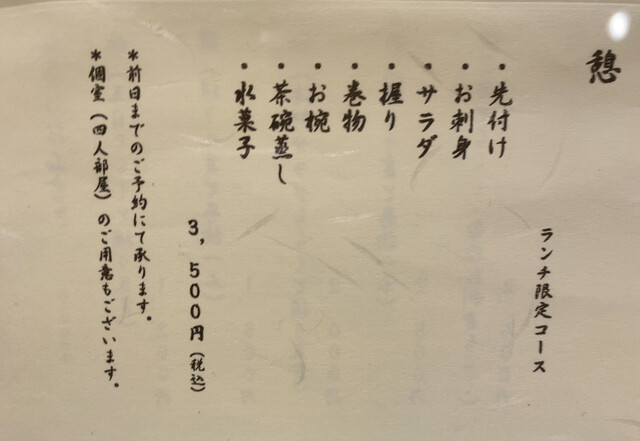 憩
ランチ限定コース
・先付け
・お刺身
・サラダ
・握り
・巻物
・お椀
・茶碗蒸し
・水菓子
3,500円(税込)
*前日までのご予約にて承ります。
*個室(四人部屋)のご用意もございます。